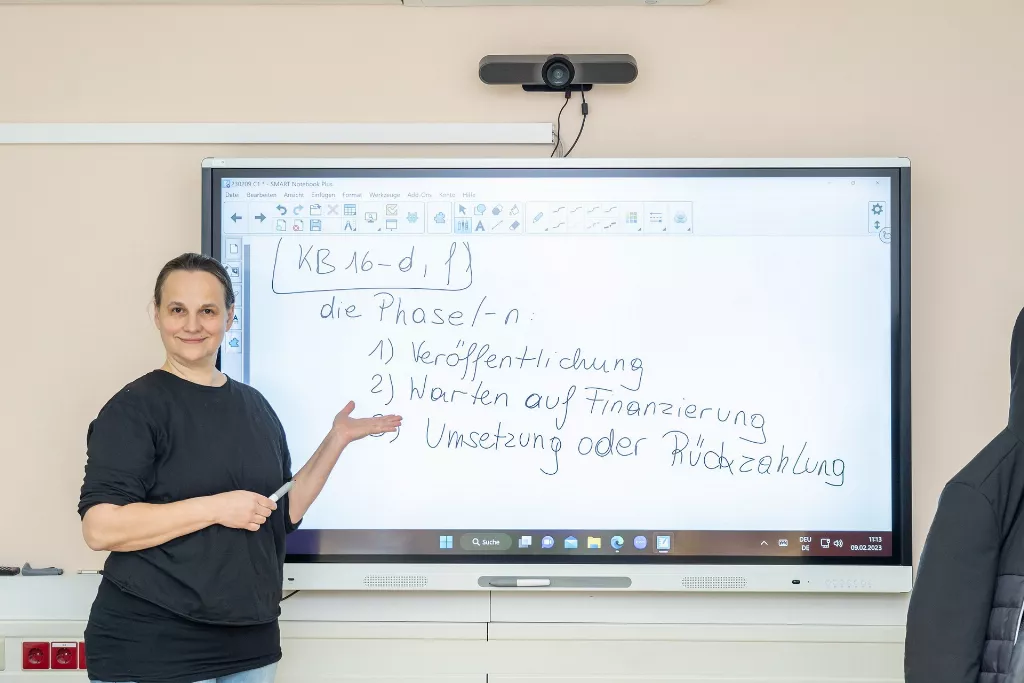 230209 C1 * - SMART Notebook Plus
Datei Bearbeiten Ansicht Einfügen Format Werkzeuge Add-Ons Konto Hilfe
KB 16-d, f)
die Phase/-n:
1) Veröffentlichung
2) Warten auf Finanzierung
3) Umsetzung oder Rückzahlung
Suche
DEU
DE
11:13
09.02.2023